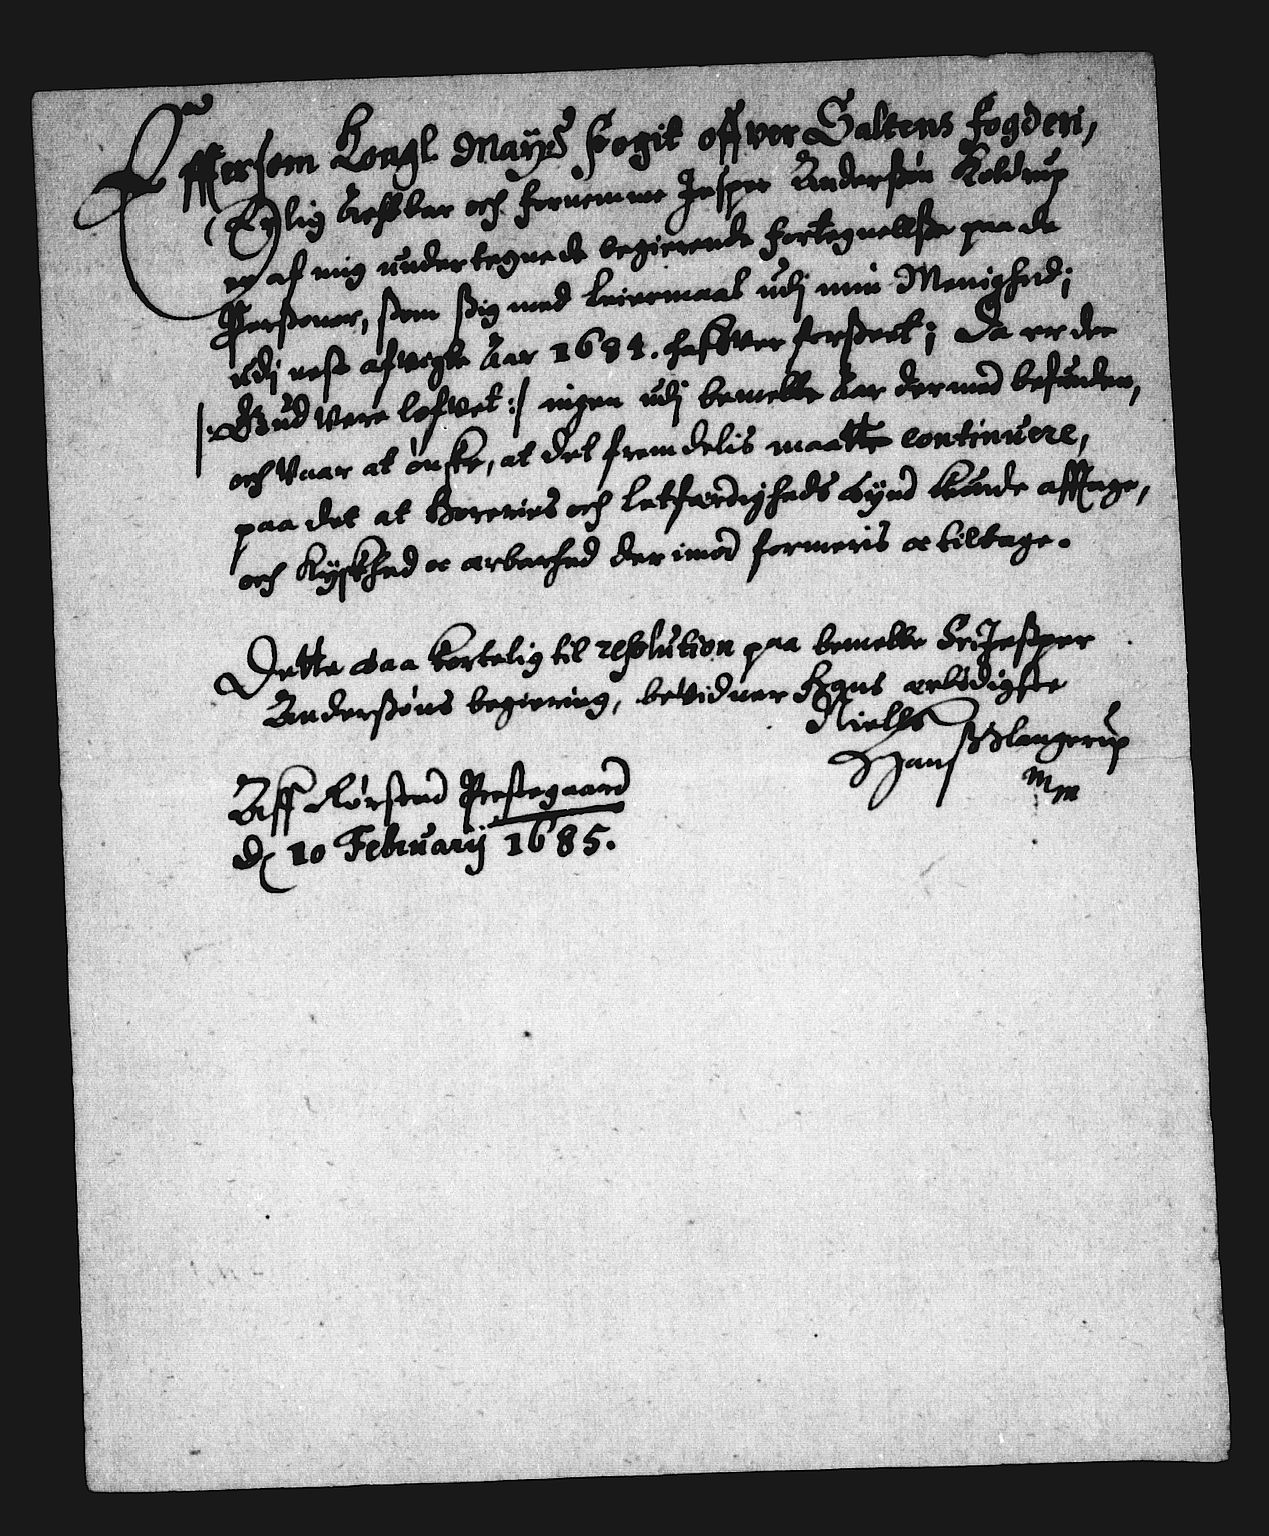 Effersom Kongl Maÿtz fogit offver Saltens fogderi,
Erlig Actbar och fornemme Jesper Anderßøn Koldrup
er af mig undertegnede begierende fortegnellße paa de
Perßoner, ßom ßig med leiermaal udj min Menighed;
udj nest afvigte Aar 1684. hafver forßeet; Da er der
/: Gud være lofvet :/ ingen udj bemelte Aar dermed befunden,
och Vaar at ønske, at det fremdelis maatte continuere,
paa det at Horeries och letfærdigheds Synd kunde afftage,
och Kyskhed oc ærbarhed der imod formeris oc tiltage.
Dette saa kortelig til resolution paa bemelte Sr Jeßper
Anderßøns begiering, beVidner Hans ærbødigste
Nielß
Hanß Slangerup
mm
Aff Rørstad Prestegaard
d 10 Februarij 1685.